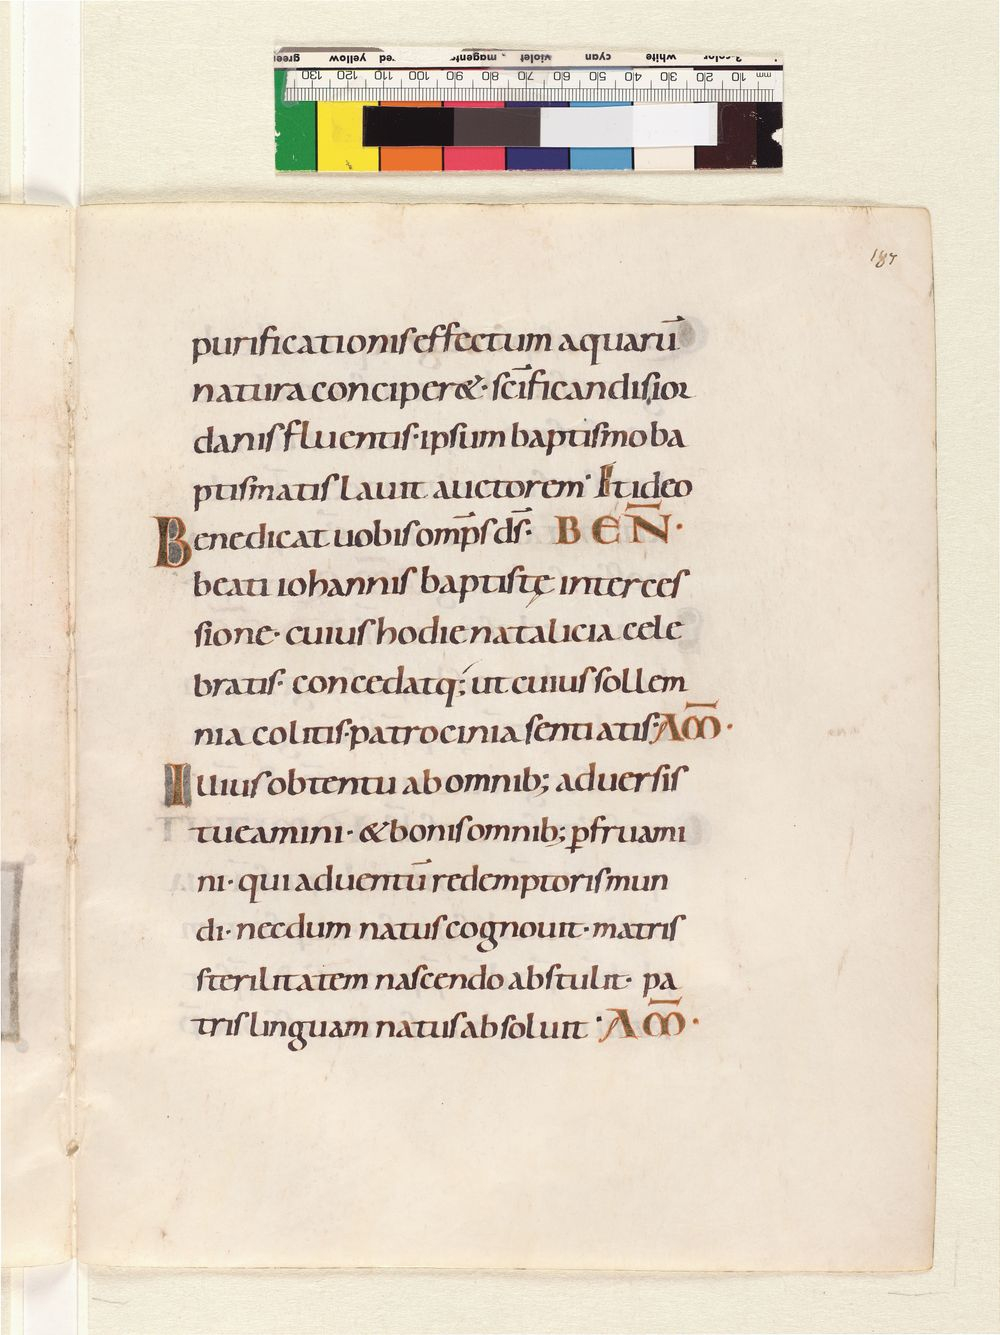 3-color white cyan violet magenta red yellow green
mm 10 20 30 40 50 60 70 80 90 100 110 120 130
187
purificationis effectum aquarū
natura conciperet· sc̄ificandis ior
danis fluentis· ipsum baptismo ba
ptismatis lauit auctorem· Et ideo
Benedicat uobis omp̄s ds̄· BEN̄·
beati iohannis baptistę interces
sione· cuius hodie natalicia cele
bratis· concedat q; ut cuius sollem
nia colitis· patrocinia sentiatis· AM̄·
Illius obtentu ab omnib; aduersis
tueamini· & bonis omnib; ꝑfruami
ni· qui aduentū redemptoris mun
di· necdum natus cognouit· matris
sterilitatem nascendo abstulit· pa
tris linguam natus absoluit· AM̄·